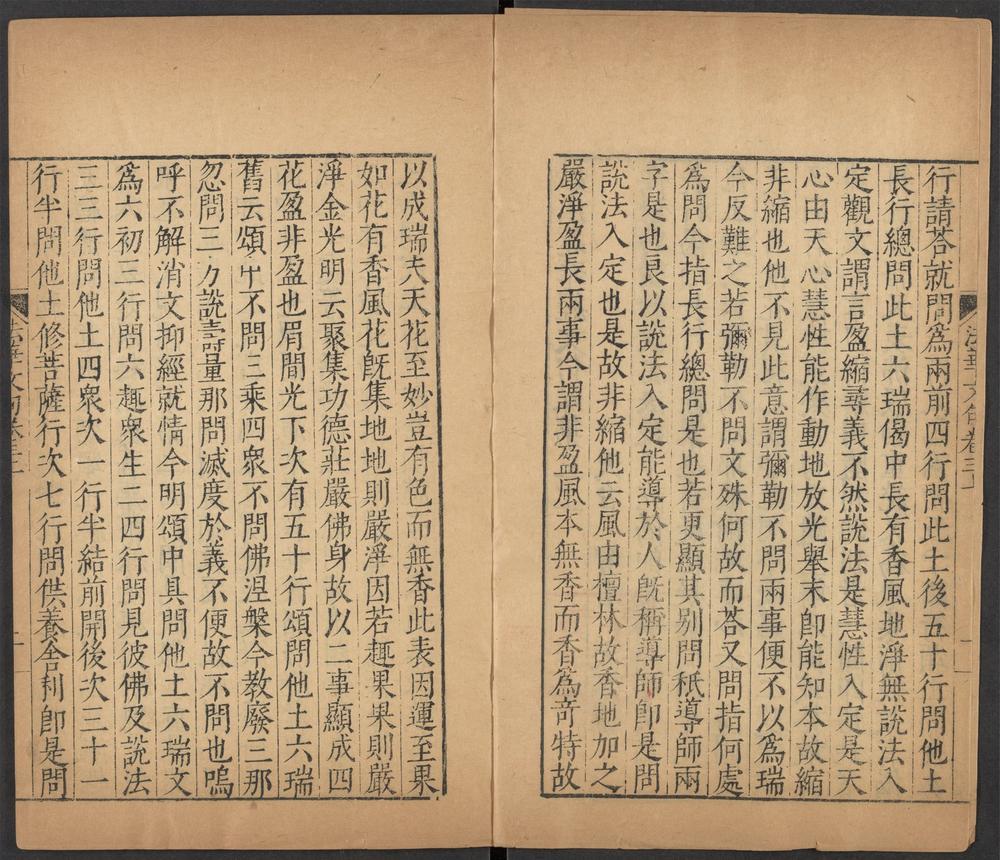 行請荅就問爲兩前四行問此土後五十行問他土
長行總問此土六瑞偈中長有香風地淨無說法入
定觀文謂言盈縮尋義不然說法是慧性入定是天
心由天心慧性能作動地放光舉末即能知本故縮
非縮也他不見此意謂彌勒不問兩事便不以爲瑞
今反難之若彌勒不問文殊何故而荅又問指何處
爲問今指長行總問是也若更顯其別問秖導師兩
字是也良以說法入定能導於人旣稱導師即是問
說法入定也是故非縮他云風由檀林故香地加之
嚴淨盈長兩事今謂非盈風本無香而香爲奇特故
以成瑞夫天花至妙豈有色而無香此表因運至果
如花有香風花旣集地地則嚴淨因若趣果果則嚴
淨金光明云聚集功德莊嚴佛身故以二事顯成四
花盈非盈也眉間光下次有五十行頌問他土六瑞
舊云頌中不問三乘四衆不問佛涅槃今教廢三那
忽問三方說壽量那問滅度於義不便故不問也嗚
呼不解消文抑經就情今明頌中具問他土六瑞文
爲六初三行問六趣衆生二四行問見彼佛及說法
三三行問他土四衆次一行半結前開後次三十一
行半問他土修菩薩行次七行問供養舍利即是問
法華文句卷三